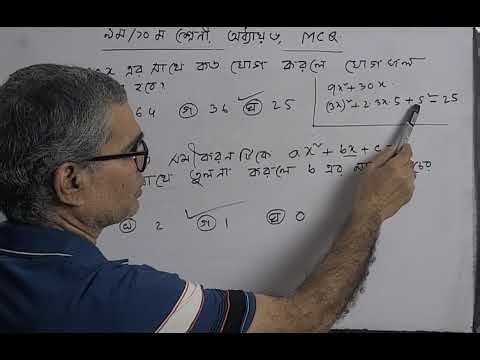 ৯ম/১০ম শ্রেণী, অধ্যায় ৩, MCQ
এর সাথে কত যোগ করলে যোগফল
হবে?
64 গ 36 ঘ 25
9x² + 30x
(3x)² + 2·3x·5 + 5² = 25
সমীকরণটিকে ax² + bx + c =
সাথে তুলনা করলে b এর
খ 2 গ 1 ঘ 0